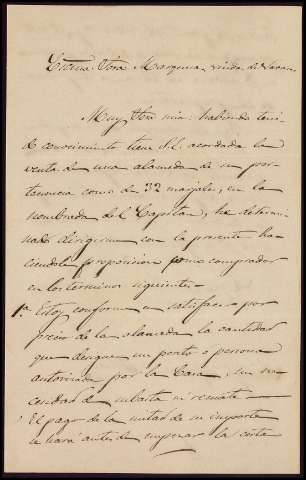 Excma. Sra. Marquesa, viuda de
Muy Sra mia: habiendo teni-
do conocimiento tiene S.E. acordada la
venta de una alameda de su per-
tenencia como de 32 marjales, en la
nombrada del Capitan, he determi-
nado dirigirme con la presente ha-
ciendole proposicion como comprador
en los terminos siguientes-
1ª Estoy conforme en satisfacer por
precio de la alameda la cantidad
que designe un perito o persona
autorizada por la Casa, sin ne-
cesidad de subasta ni remate-
El pago de la mitad de su importe
se hará antes de empezar la corta